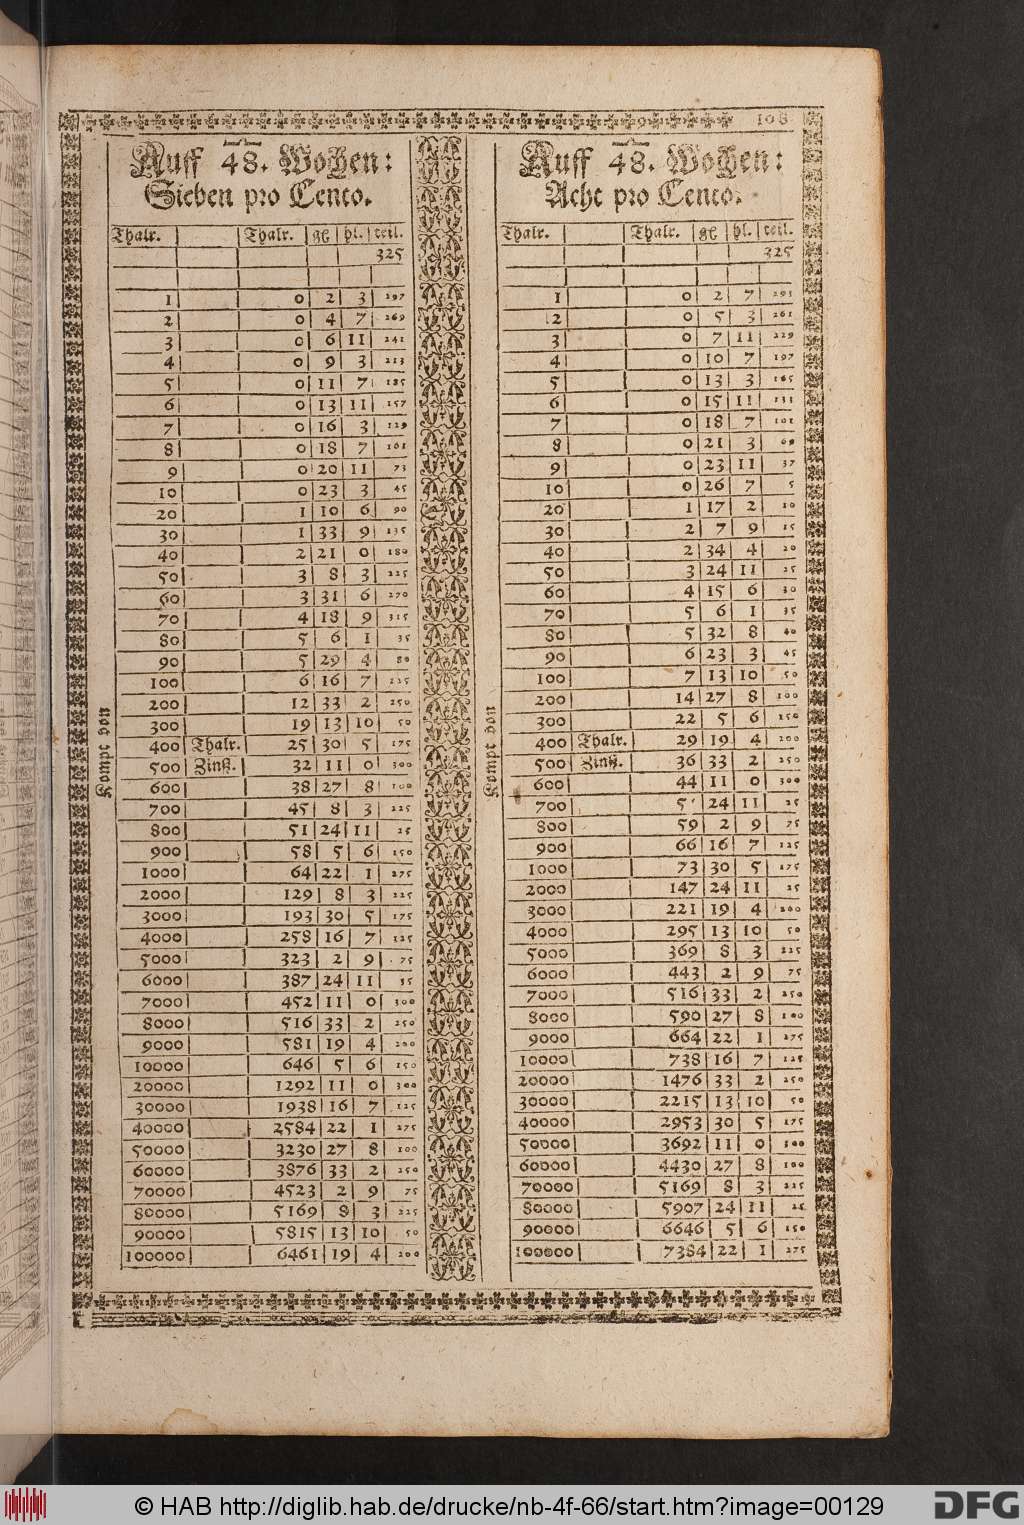 108
Auff 48. Wochen:
Sieben pro Cento.
Thalr. | Thalr. | gß | hl. | teil.
325
1 | 0 | 2 | 3 | 297
2 | 0 | 4 | 7 | 269
3 | 0 | 6 | 11 | 241
4 | 0 | 9 | 3 | 213
5 | 0 | 11 | 7 | 185
6 | 0 | 13 | 11 | 157
7 | 0 | 16 | 3 | 129
8 | 0 | 18 | 7 | 101
9 | 0 | 20 | 11 | 73
10 | 0 | 23 | 3 | 45
20 | 1 | 10 | 6 | 90
30 | 1 | 33 | 9 | 135
40 | 2 | 21 | 0 | 180
50 | 3 | 8 | 3 | 225
60 | 3 | 31 | 6 | 270
70 | 4 | 18 | 9 | 315
80 | 5 | 6 | 1 | 35
90 | 5 | 29 | 4 | 80
100 | 6 | 16 | 7 | 125
200 | 12 | 33 | 2 | 250
300 | 19 | 13 | 10 | 50
400 | Thalr. | 25 | 30 | 5 | 175
500 | Zinß. | 32 | 11 | 0 | 300
600 | 38 | 27 | 8 | 100
700 | 45 | 8 | 3 | 225
800 | 51 | 24 | 11 | 25
900 | 58 | 5 | 6 | 150
1000 | 64 | 22 | 1 | 275
2000 | 129 | 8 | 3 | 225
3000 | 193 | 30 | 5 | 175
4000 | 258 | 16 | 7 | 125
5000 | 323 | 2 | 9 | 75
6000 | 387 | 24 | 11
7000 | 452 | 11 | 0 | 300
8000 | 516 | 33 | 2 | 250
9000 | 581 | 19 | 4 | 200
10000 | 646 | 5 | 6 | 150
20000 | 1292 | 11 | 0 | 300
30000 | 1938 | 16 | 7 | 125
40000 | 2584 | 22 | 1 | 275
50000 | 3230 | 27 | 8 | 100
60000 | 3876 | 33 | 2 | 250
70000 | 4523 | 2 | 9 | 75
80000 | 5169 | 8 | 3 | 225
90000 | 5815 | 13 | 10 | 50
100000 | 6461 | 19 | 4 | 200
Kompt von
Auff 48. Wochen:
Acht pro Cento.
Thalr. | Thalr. | gß | hl. | teil.
325
1 | 0 | 2 | 7 | 293
2 | 0 | 5 | 3 | 261
3 | 0 | 7 | 11 | 229
4 | 0 | 10 | 7 | 197
5 | 0 | 13 | 3 | 165
6 | 0 | 15 | 11 | 133
7 | 0 | 18 | 7 | 101
8 | 0 | 21 | 3 | 69
9 | 0 | 23 | 11 | 37
10 | 0 | 26 | 7 | 5
20 | 1 | 17 | 2 | 10
30 | 2 | 7 | 9 | 15
40 | 2 | 34 | 4 | 20
50 | 3 | 24 | 11 | 25
60 | 4 | 15 | 6 | 30
70 | 5 | 6 | 1 | 35
80 | 5 | 32 | 8 | 40
90 | 6 | 23 | 3 | 45
100 | 7 | 13 | 10 | 50
200 | 14 | 27 | 8 | 100
300 | 22 | 5 | 6 | 150
400 | Thalr. | 29 | 19 | 4 | 200
500 | Zinß. | 36 | 33 | 2 | 250
600 | 44 | 11 | 0 | 300
700 | 24 | 11 | 25
800 | 59 | 2 | 9 | 75
900 | 66 | 16 | 7 | 125
1000 | 73 | 30 | 5 | 175
2000 | 147 | 24 | 11 | 25
3000 | 221 | 19 | 4 | 200
4000 | 295 | 13 | 10 | 50
5000 | 369 | 8 | 3 | 225
6000 | 443 | 2 | 9 | 75
7000 | 516 | 33 | 2 | 250
8000 | 590 | 27 | 8 | 100
9000 | 664 | 22 | 1 | 275
10000 | 738 | 16 | 7 | 125
20000 | 1476 | 33 | 2 | 250
30000 | 2215 | 13 | 10 | 50
40000 | 2953 | 30 | 5 | 175
50000 | 3692 | 11 | 0 | 300
60000 | 4430 | 27 | 8 | 100
70000 | 5169 | 8 | 3 | 225
80000 | 5907 | 24 | 11 | 25
90000 | 6646 | 5 | 6 | 150
100000 | 7384 | 22 | 1 | 275
Kompt von
© HAB http://diglib.hab.de/drucke/nb-4f-66/start.htm?image=00129
DFG